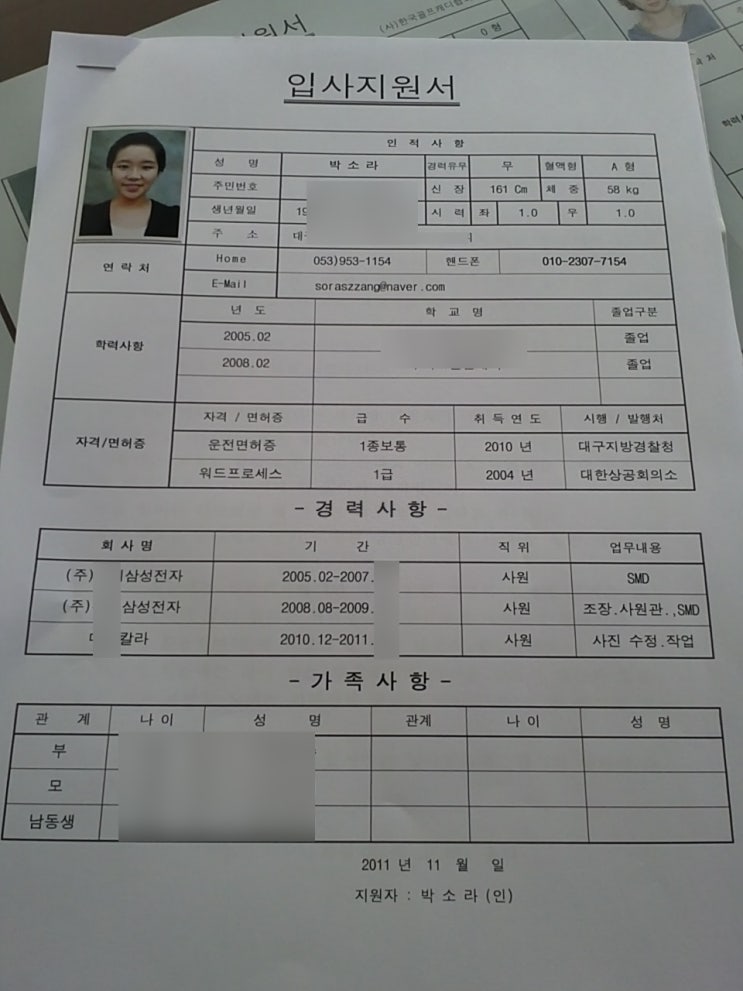 (사)한국골프캐디협회
O 형
입사지원서
인 적 사 항
성 명 박 소 라 경력유무 무 혈액형 A 형
주민번호 신 장 161 Cm 체 중 58 kg
생년월일 19 시 력 좌 1.0 우 1.0
주 소 대
연 락 처 Home 053)953-1154 핸드폰 010-2307-7154
E-Mail soraszzang@naver.com
학력사항 년 도 학 교 명 졸업구분
2005.02 졸업
2008.02 졸업
자격/면허증 자격 / 면허증 급 수 취 득 연 도 시행 / 발행처
운전면허증 1종보통 2010 년 대구지방경찰청
워드프로세스 1급 2004 년 대한상공회의소
- 경 력 사 항 -
회 사 명 기 간 직 위 업무내용
(주) 삼성전자 2005.02-2007. 사원 SMD
(주) 삼성전자 2008.08-2009. 사원 조장.사원관.,SMD
칼라 2010.12-2011. 사원 사진 수정.작업
- 가 족 사 항 -
관 계 나 이 성 명 관계 나 이 성 명
부
모
남동생
2011 년 11 월 일
지원자 : 박 소 라 (인)